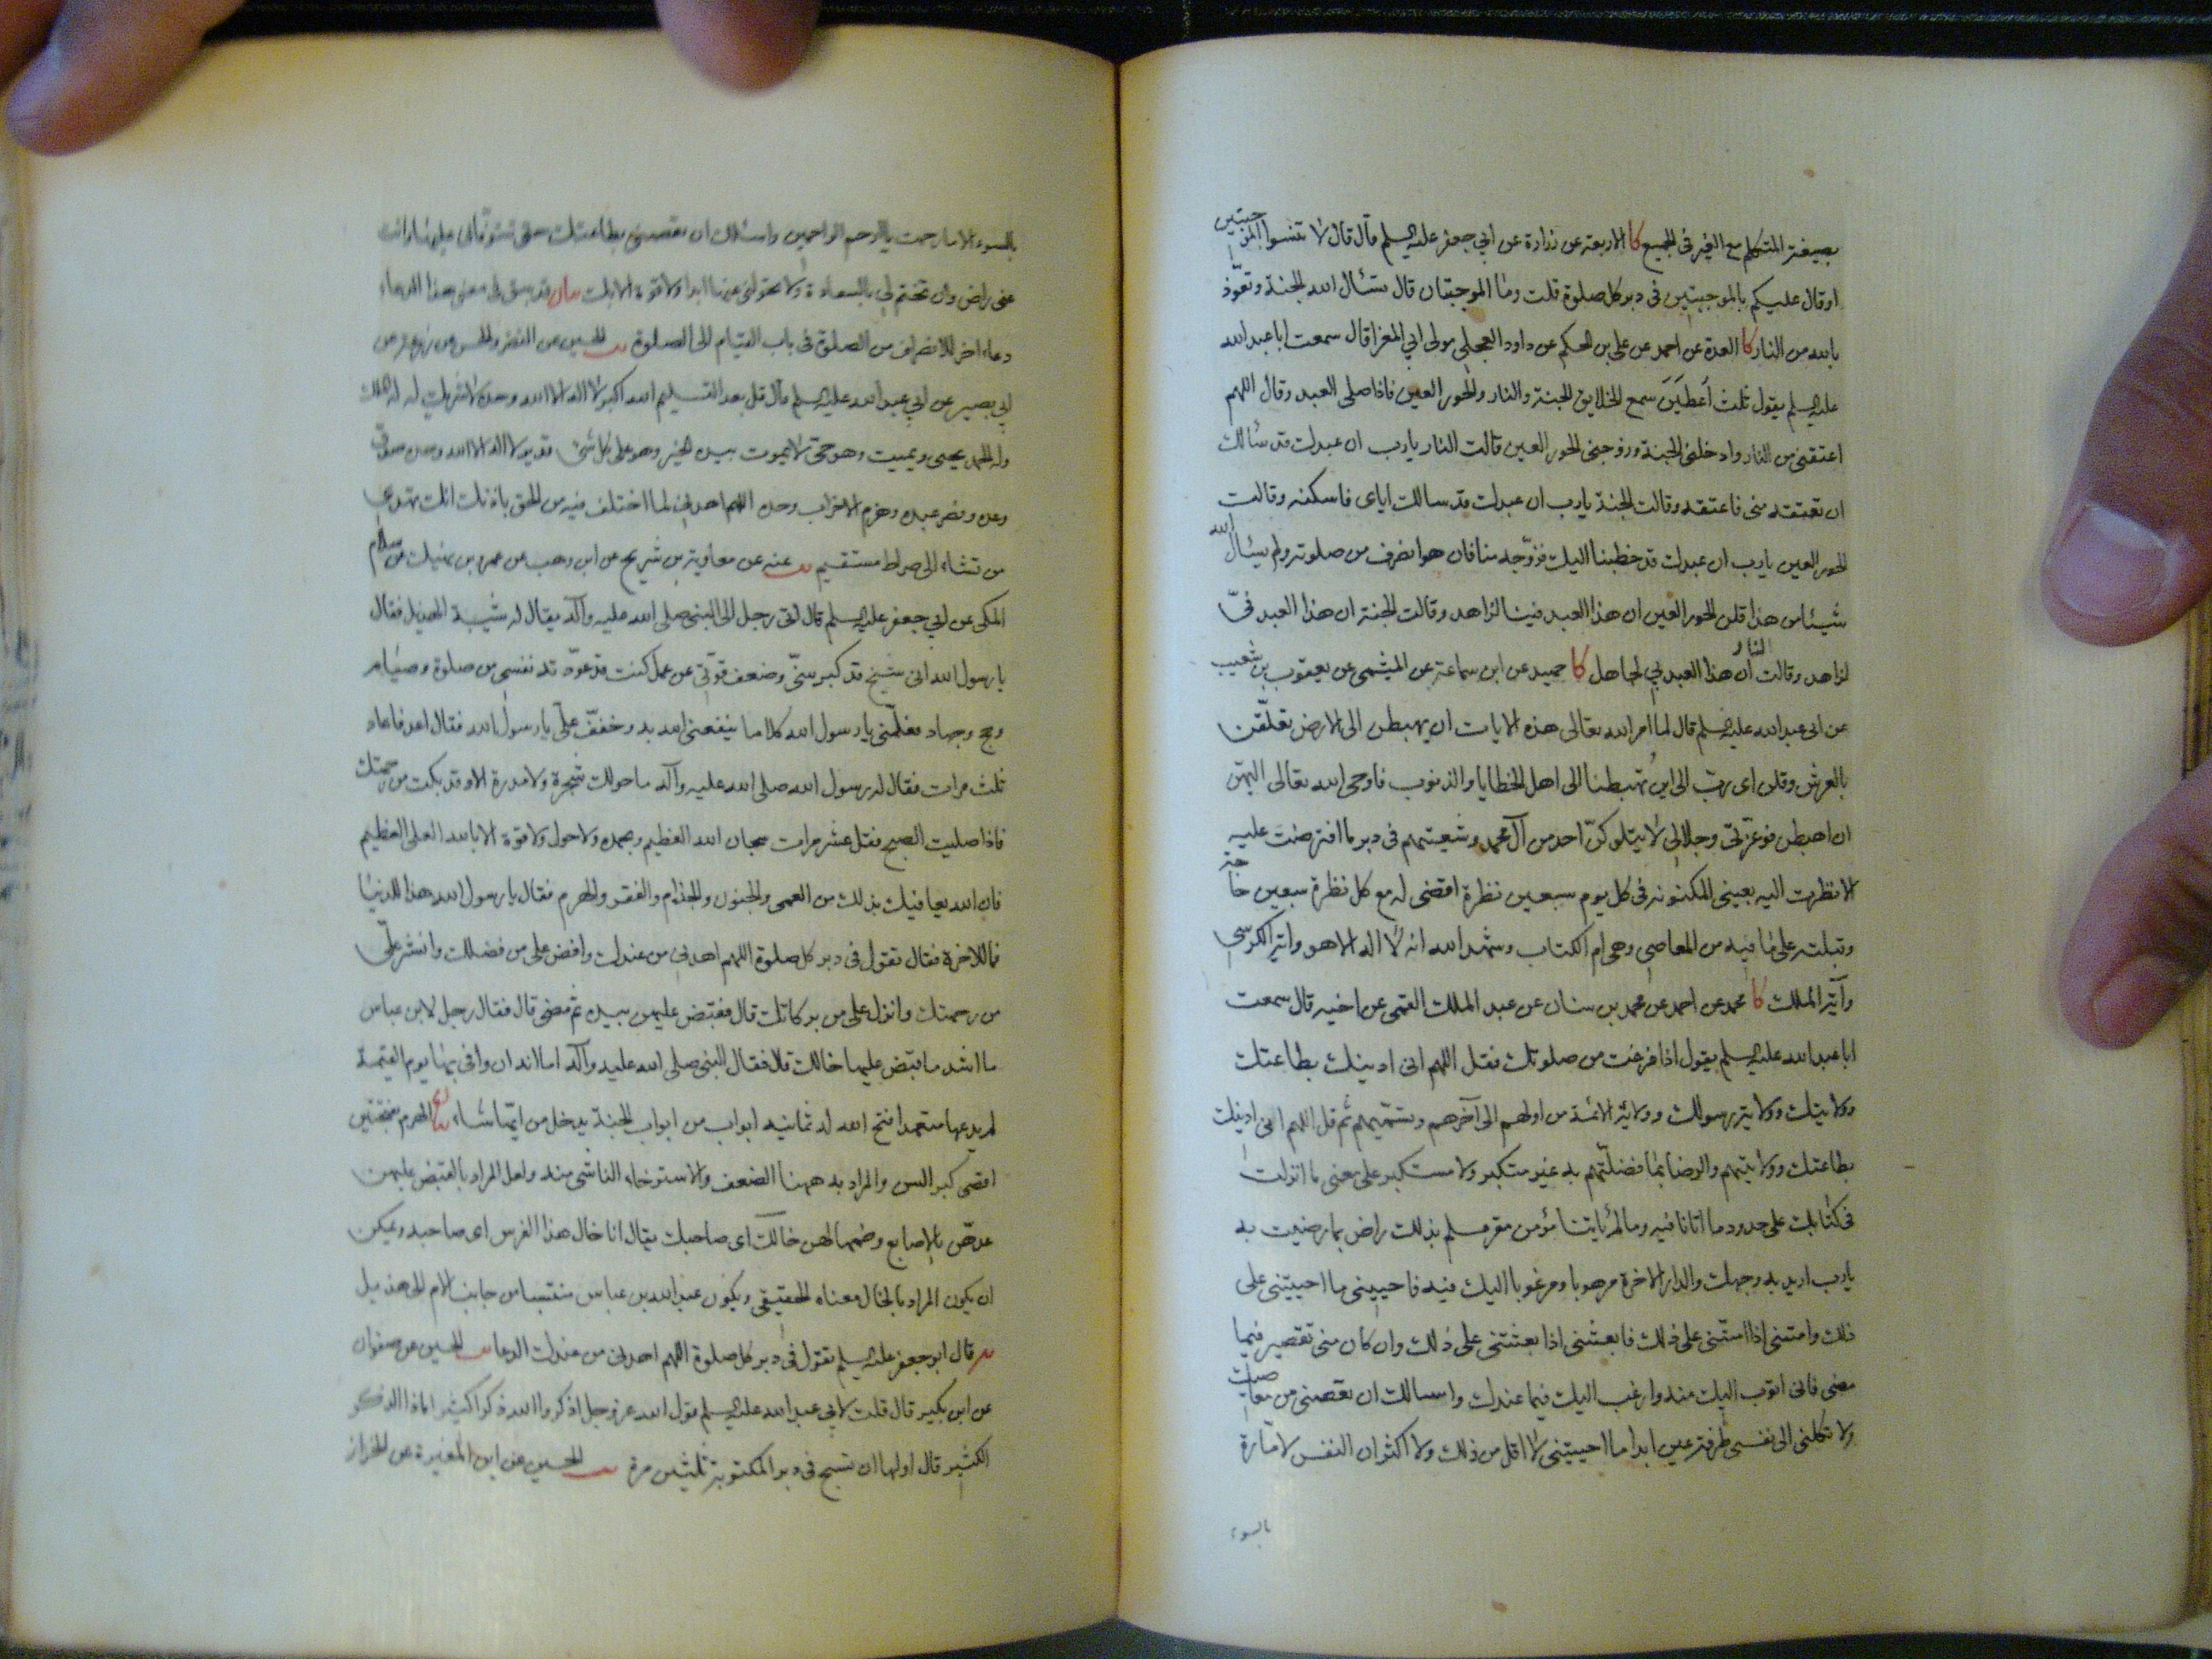 بصيغة المتكلم مع الغير في الجميع كا الاربعة عن زرارة عن ابي جعفر عليه السلم قال قال لا تنسوا الموجبتين
او قال عليكم بالموجبتين في دبر كل صلوة قلت وما الموجبتان قال تسئال الله الجنة وتعوّذ
بالله من النار كا العدة عن احمد عن علي بن الحكم عن داود العجلي مولى ابي المغرا قال سمعت ابا عبد الله
عليه السلم يقول ثلث اُعطينَ سمع الخلايق الجنة والنار والحور العين فاذا صلى العبد وقال اللهم
اعتقني من النار وادخلني الجنة وزوجني الحور العين قالت النار يا رب ان عبدك قد سئالك
ان تعتقه مني فاعتقه وقالت الجنة يا رب ان عبدك قد سالك اياى فاسكنه وقالت
الحور العين يا رب ان عبدك قد خطبنا اليك فزوّجه منا فان هو انصرف من صلوته ولم يسئال الله
شيئا من هذا قلن الحور العين ان هذا العبد فينا لزاهد وقالت الجنة ان هذا العبد فىّ
لزاهد وقالت النار ان هذا العبد بي لجاهل كا حميد عن ابن سماعة عن الميثمي عن يعقوب بن شعيب
عن ابي عبد الله عليه السلم قال لما امر الله تعالى هذه الايات ان يهبطن الى الارض تعلّقن
بالعرش وقلن اى ربّ الى اين تهبطنا الى اهل الخطايا والذنوب فاوحى الله تعالى اليهن
ان اهبطن فوعزّتي وجلالي لا يتلوكنّ احد من آل محمد وشيعتهم في دبر ما افترضت عليه
الا نظرت اليه بعيني المكنونة في كل يوم سبعين نظرة اقضي له مع كل نظرة سبعين حاجة
وقبلته على ما فيه من المعاصي وهي ام الكتاب وشهد الله انه لا اله الا هو واية الكرسي
وآية الملك كا محمد عن احمد عن محمد بن سنان عن عبد الملك القمي عن اخيه قال سمعت
ابا عبد الله عليه السلم يقول اذا فرغت من صلوتك فقل اللهم اني ادينك بطاعتك
وولايتك وولاية رسولك وولاية الائمة من اولهم الى آخرهم وتسمّيهم ثم قل اللهم اني ادينك
بطاعتك وولايتهم والرضا بما فضلتهم به غير متكبر ولا مستكبر على معنى ما انزلت
في كتابك على حدود ما اتانا فيه وما لم يأتنا مؤمن مقر مسلم بذلك راض بما رضيت به
يا رب اريد به وجهك والدار الاخرة مرهوبا ومرغوبا اليك فيه فاحييني ما احييتني على
ذلك وامتني اذا امتّني على ذلك فابعثني اذا بعثتني على ذلك وان كان مني تقصير فيما
مضى فاني اتوب اليك منه وارغب اليك فيما عندك واسالك ان تعصمني من معاصيك
ولا تكلني الى نفسي طرفة عين ابدا ما احييتني لا اقل من ذلك ولا اكثر ان النفس لامّارة
بالسوء
بالسوء الا ما رحمت يا ارحم الراحمين واسئلك ان تعصمني بطاعتك حتى تتوفّاني عليها وانت
عني راض وان تختم لي بالسعادة ولا تحولني عنها ابدا ولا قوة الا بك بيان قد سبق في معنى هذا الدعاء
دعاء اخر للانصراف من الصلوة في باب القيام الى الصلوة يب الحسين عن النضر والحسن عن زرعة عن
ابي بصير عن ابي عبد الله عليه السلم قال قل بعد التسليم الله اكبر لا اله الا الله وحده لا شريك له له الملك
وله الحمد يحيى ويميت وهو حي لا يموت بيده الخير وهو على كل شئ قدير لا اله الا الله وحده صدق
وعده ونصر عبده وهزم الاحزاب وحده اللهم اهدني لما اختلف فيه من الحق باذنك انك تهدي
من تشاء الى صراط مستقيم يب عنه عن معاوية بن شريح عن ابن وهب عن عمر بن نهيك عن سلام
المكي عن ابي جعفر عليه السلم قال اتى رجل الى النبي صلى الله عليه وآله يقال له شيبة الهذيل فقال
يا رسول الله اني شيخ قد كبر سنّي وضعف قوّتي عن عمل كنت قد عوّدته نفسي من صلوة وصيام
وحج وجهاد فعلّمني يا رسول الله كلاما ينفعني الله به وخفّف علىّ يا رسول الله فقال اعد فاعاد
ثلث مرات فقال له رسول الله صلى الله عليه وآله ما حولك شجرة ولا مدرة الا وقد بكت من رحمتك
فاذا صليت الصبح فقل عشر مرات سبحان الله العظيم وبحمده ولا حول ولا قوة الا بالله العلي العظيم
فان الله يعافيك بذلك من العمى والجنون والجذام والفقر والهرم فقال يا رسول الله هذا للدنيا
فما للاخرة فقال تقول في دبر كل صلوة اللهم اهدني من عندك وافض على من فضلك وانشر علىّ
من رحمتك وانزل على من بركاتك قال فقبض عليهن بيده ثم مضى قال فقال رجل لابن عباس
ما اشد ما قبض عليها خالك قال فقال النبي صلى الله عليه وآله اما انه ان وافى بها يوم القيمة
لم يدعها متعمدا فتح الله له ثمانية ابواب من ابواب الجنة يدخل من ايّها شاء بيان الهرم بفتحتين
اقصى كبر السن والمراد به ههنا الضعف والاسترخاء الناشي منه ولعل المراد بالقبض عليهن
عدهّن بالاصابع وضمها لهن خالك اى صاحبك يقال انا خال هذا الفرس اى صاحبه ويمكن
ان يكون المراد بالخال معناه الحقيقي ويكون عبد الله بن عباس منتسبا من جانب الام الى هذيل
يه قال ابو جعفر عليه السلم تقول في دبر كل صلوة اللهم اهدني من عندك الدعا يب الحسين عن صفوان
عن ابن بكير قال قلت لابي عبد الله عليه السلم قول الله عز وجل اذكروا الله ذكرا كثيرا ماذا الذكر
الكثير قال اولها ان تسبح في دبر المكتوبة ثلثين مرة يب الحسين عن ابن المغيرة عن الخراز